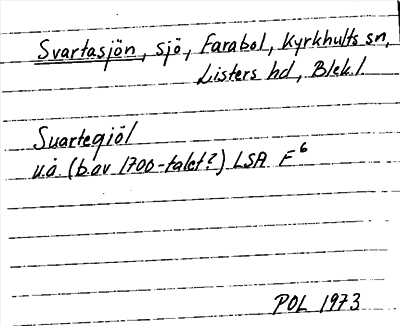 Svartasjön, sjö, Farabol, Kyrkhults sn,
Listers hd, Blek. l.
Suartegiöl
u.å. (b. av 1700-talet?) LSA F6
POL 1973